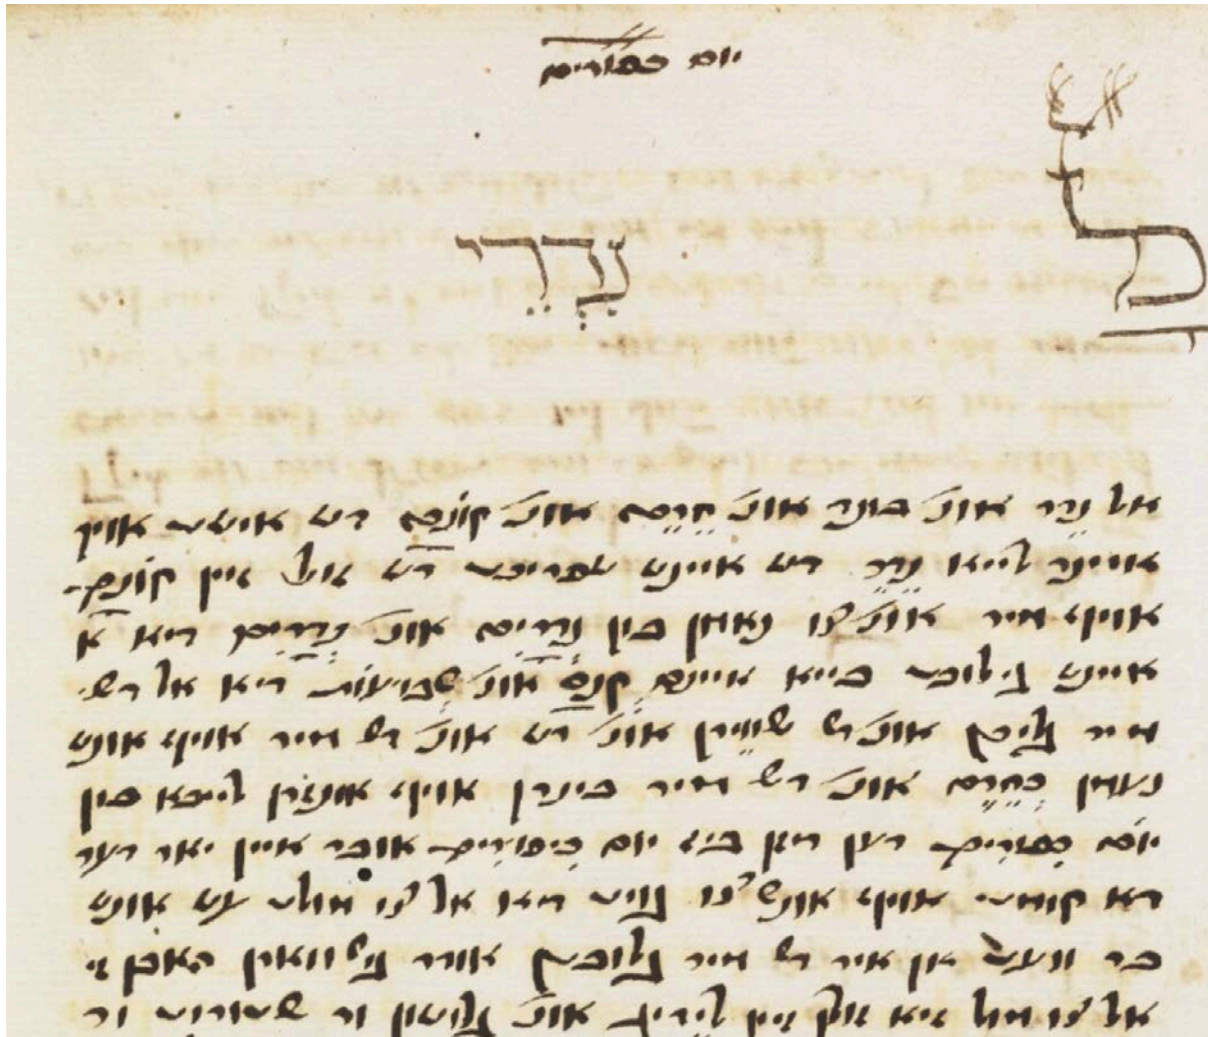 יום כפורים
כָל נִדְרֵי
אל נֵדֶר אונ' בונד אונ' חֵרֶם אונ' קוֹנָם דש איטש אויך
איינר לייא נֵדֶר דש איינש שפריכט דש זול זיין קונם
אויף מיר אונ' צו נאמן פון נְדָרִים אונ' נְדָרִים דיא
איינש גילובט בייא איינם קָנָס אונ' שְבוּעוֹת דיא אל דש
מיר אונ' דש שווערן אונ' דש אונ' דש מיר אויף אונש
נעמן בְחֵרֶם אונ' דש מיר בינדן אויף אונזרן לייבא פון
יוֹם כִפוּרִים דען דיזן ביז יום כִיפּוּרִים אובר איין יאר דער
דא קומט אויף אונש צו דיא אל צו מולט עש אונש
בר אן איר דש מיר גלובט אודר האבן
אל צו מול זיא זולן זיין לידיג אונ'